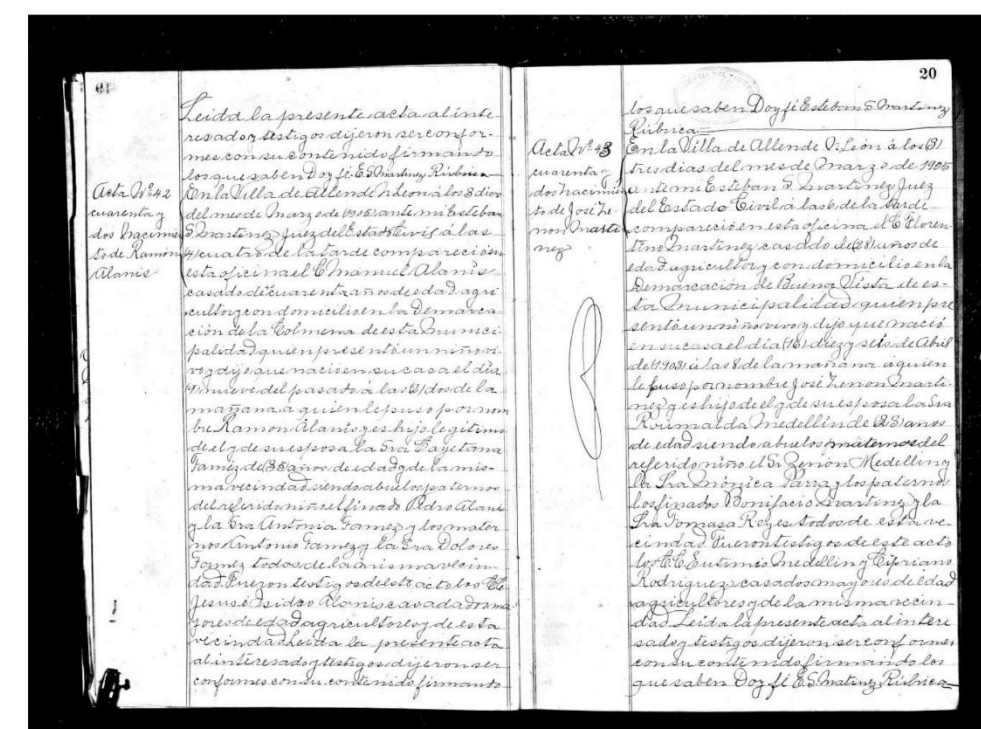 19
Leida la presente acta al inte
resado y testigos dijeron ser confor-
mes con su contenido firmando
los que saben Doy fé E S Martinez Rúbrica
Acta Nº 42
cuarenta y
dos Nacimien
to de Ramon
Alanis
En la Villa de Allende N. León á los 3 dias
del mes de Marzo de 1905 ante mi Esteban
S. Martinez Juez del Estado Civil á las
(4) cuatro de la tarde compareció en
esta oficina el C Manuel Alanis
casado de cuarenta años de edad agri
cultor y con domicilio en la Demarca
ción de la Colmena de esta Munici
palidad quien presentó un niño vi
vo y dijo que nació en su casa el dia
(9) nueve del pasado á las (2) dos de la
mañana a quien le puso por nom
bre Ramon Alanis y es hijo legitimo
de el y de su esposa la Sra Cayetana
Tamez de (35) años de edad y de la mis-
ma vecindad siendo abuelos paternos
del referido niño el finado Pedro Alani
y la Sra Antonia Tamez y los mater
nos Antonio Tamez y la Sra Dolores
Tamez todos de la misma vecin-
dad Fueron testigos de este acto los CC
Jesus é Isidro Alanis casados ma
yores de edad agricultores y de esta
vecindad Leida la presente acta
al interesado y testigos dijeron ser
conformes con su contenido firmando
20
los que saben Doy fé Esteban S. Martinez
Rúbrica
Acta Nº 43
cuarenta y
dos Nacimien
to de José Ze-
non Marti
nez
En la Villa de Allende N. León á los (3)
tres dias del mes de Marzo de 1905
ante mi Esteban S. Martinez Juez
del Estado Civil á las 6 de la tarde
compareció en esta oficina el C Floren
tino Martinez casado de (28) años de
edad agricultor y con domicilio en la
Demarcación de Buena Vista de es-
ta Municipalidad quien pre
sentó un niño vivo y dijo que nació
en su casa el día (16) diez y seis de Abril
de (1903) á las 8 de la mañana á quien
le puso por nombre José Zenon Marti-
nez y es hijo de el y de su esposa la Sra
Romualda Medellin de (23) años
de edad siendo abuelos maternos del
referido niño el Sr. Zenón Medellin y
la Sra Mónica Parra y los paternos
los finados Bonifacio Martinez y la
Sra Tomasa Reyes todos de esta ve
cindad Fueron testigos de este acto
los CC Eutimio Medellin y Cipriano
Rodriguez casados mayores de edad
agricultores y de la misma vecin-
dad Leida la presente acta al intere
sado y testigos dijeron ser conformes
con su contenido firmando los
que saben Doy fé E S Matinez Rúbrica